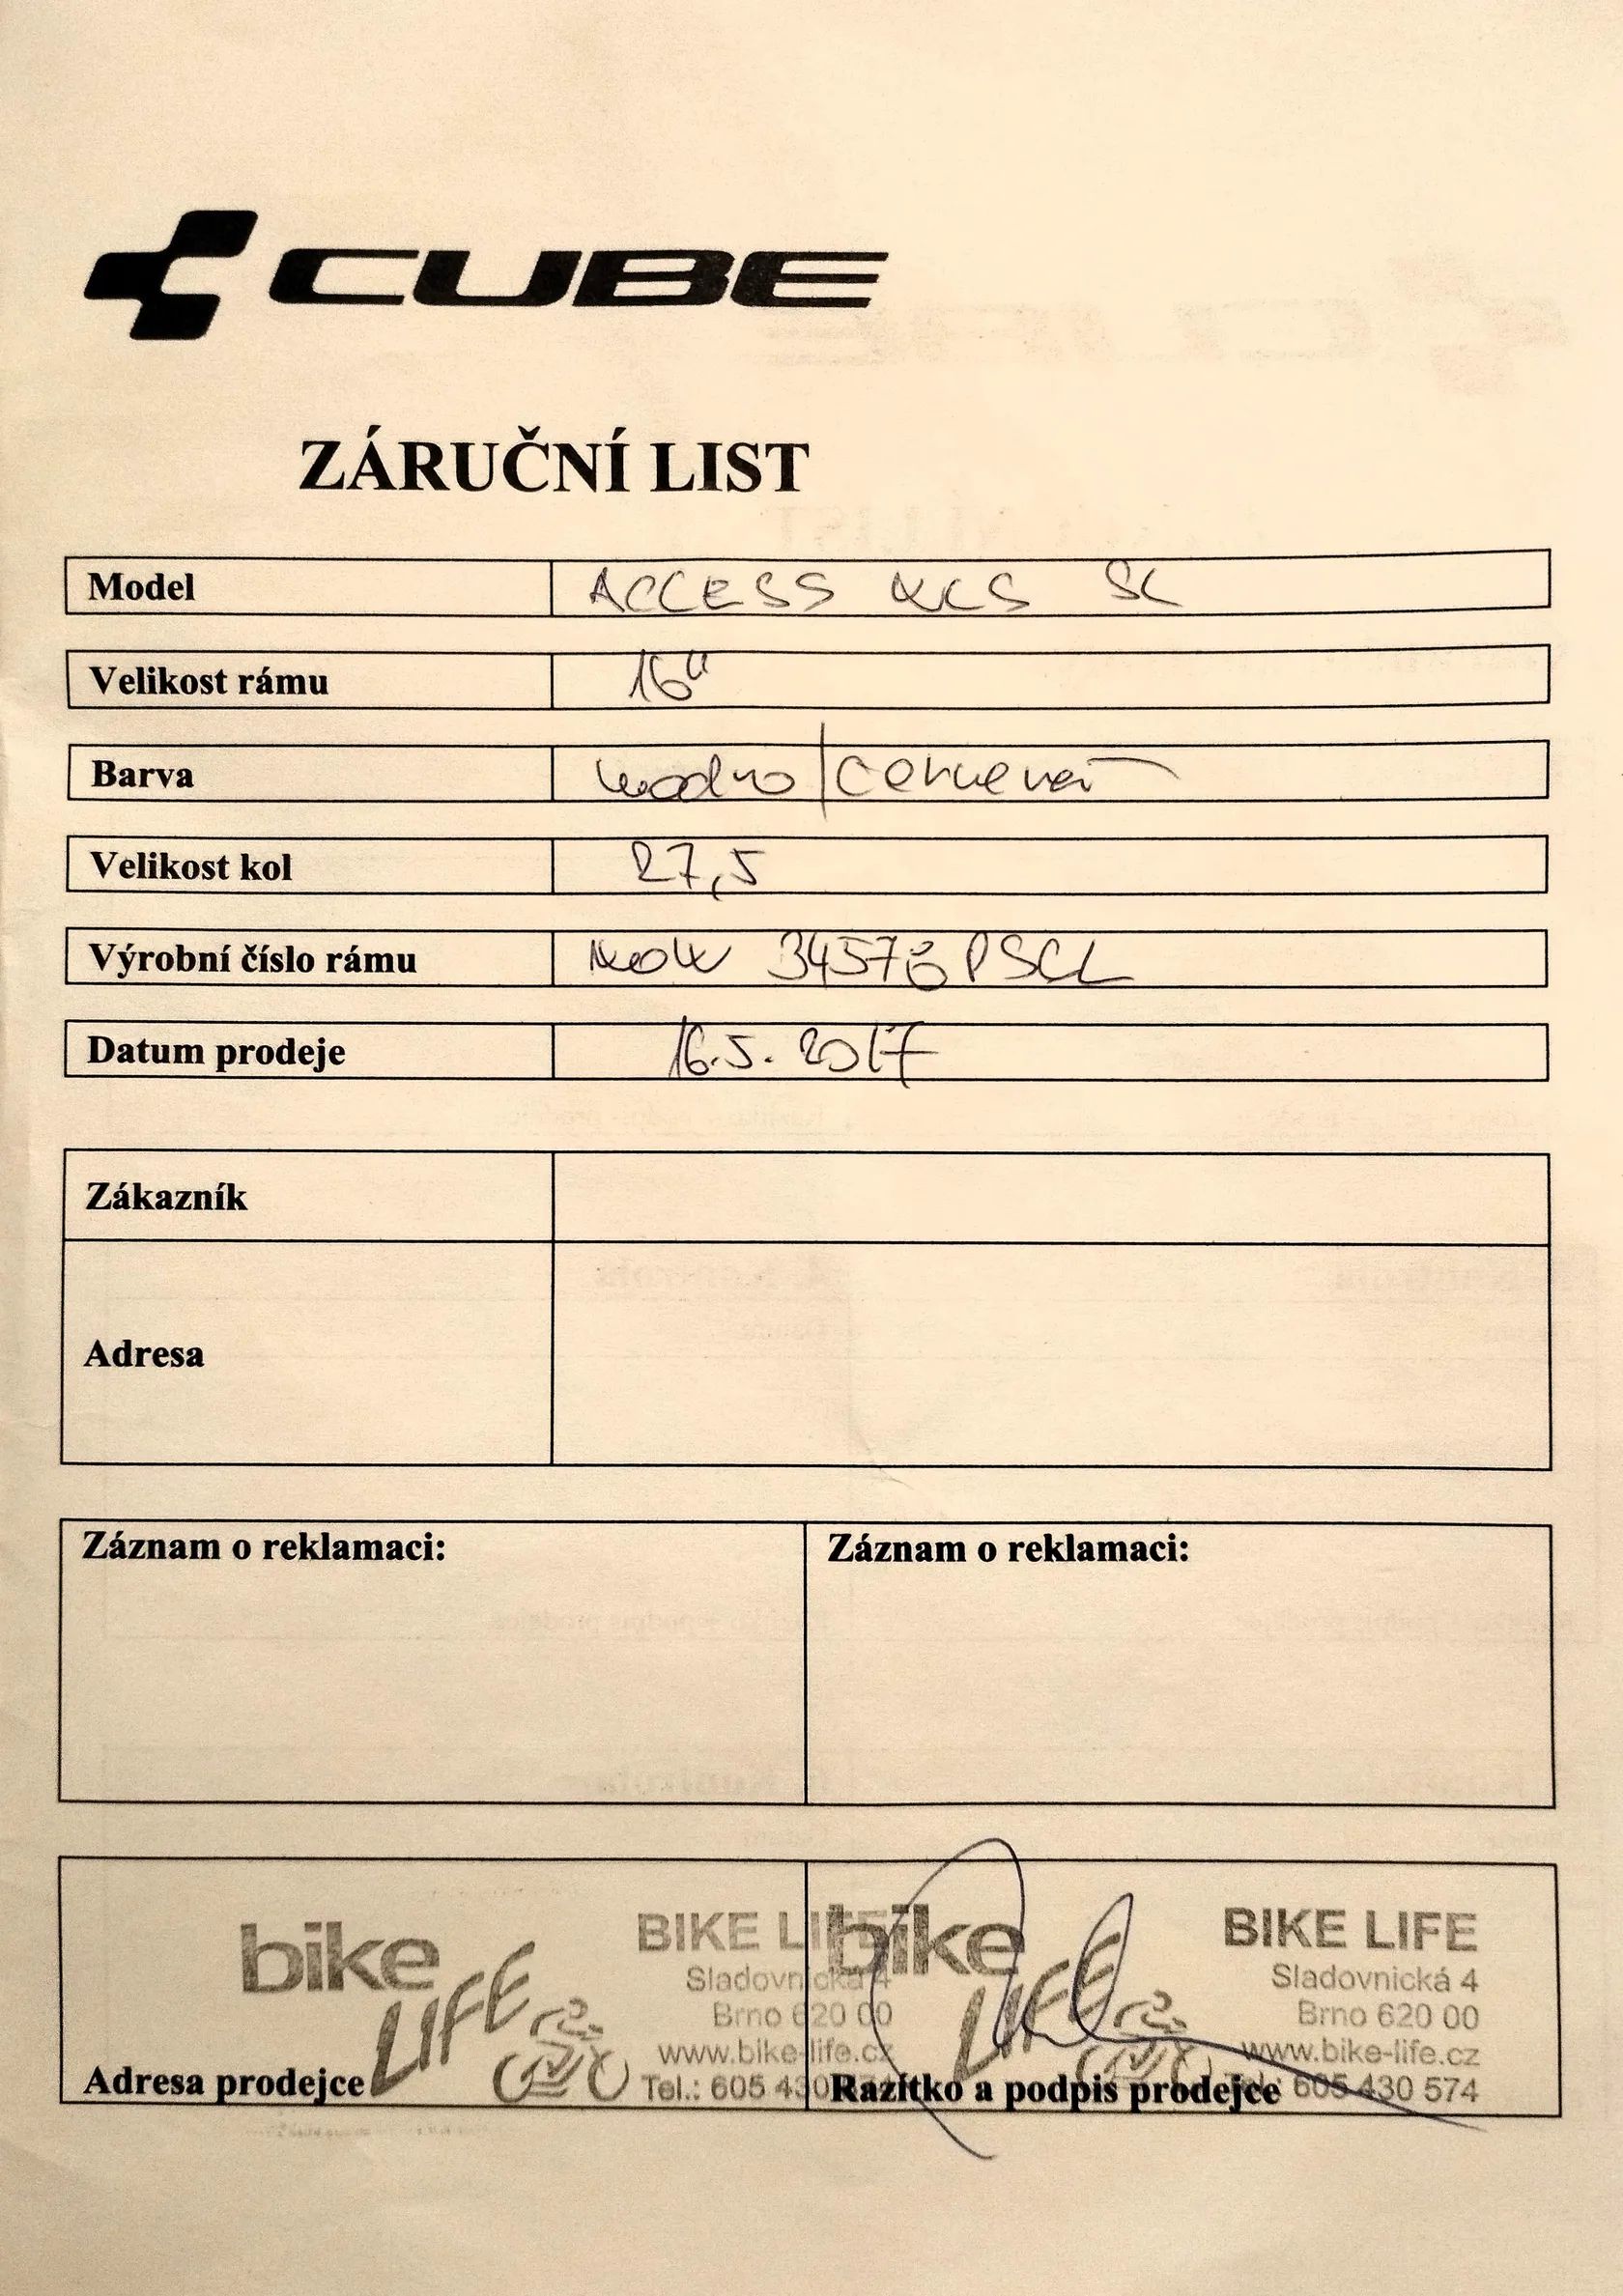 CUBE
ZÁRUČNÍ LIST
Model ACCESS WLS SL
Velikost rámu 16"
Barva modro/červená
Velikost kol 27,5
Výrobní číslo rámu WOW 34573 PSCL
Datum prodeje 16.5.2017
Zákazník
Adresa
Záznam o reklamaci: Záznam o reklamaci:
bike LIFE BIKE LIFE bike LIFE BIKE LIFE
Sladovnická 4 Sladovnická 4
Brno 620 00 Brno 620 00
www.bike-life.cz www.bike-life.cz
Adresa prodejce Tel.: 605 430 Razítko a podpis prodejce Tel.: 605 430 574